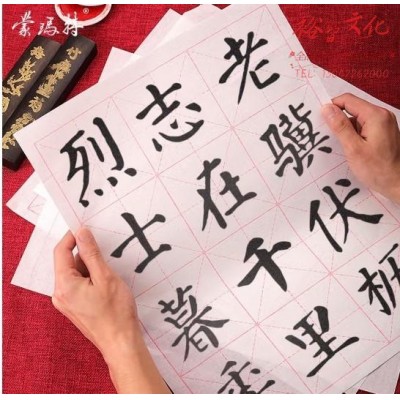 蒙玛特
文化
TEL
老骥伏枥
志在千里
烈士暮